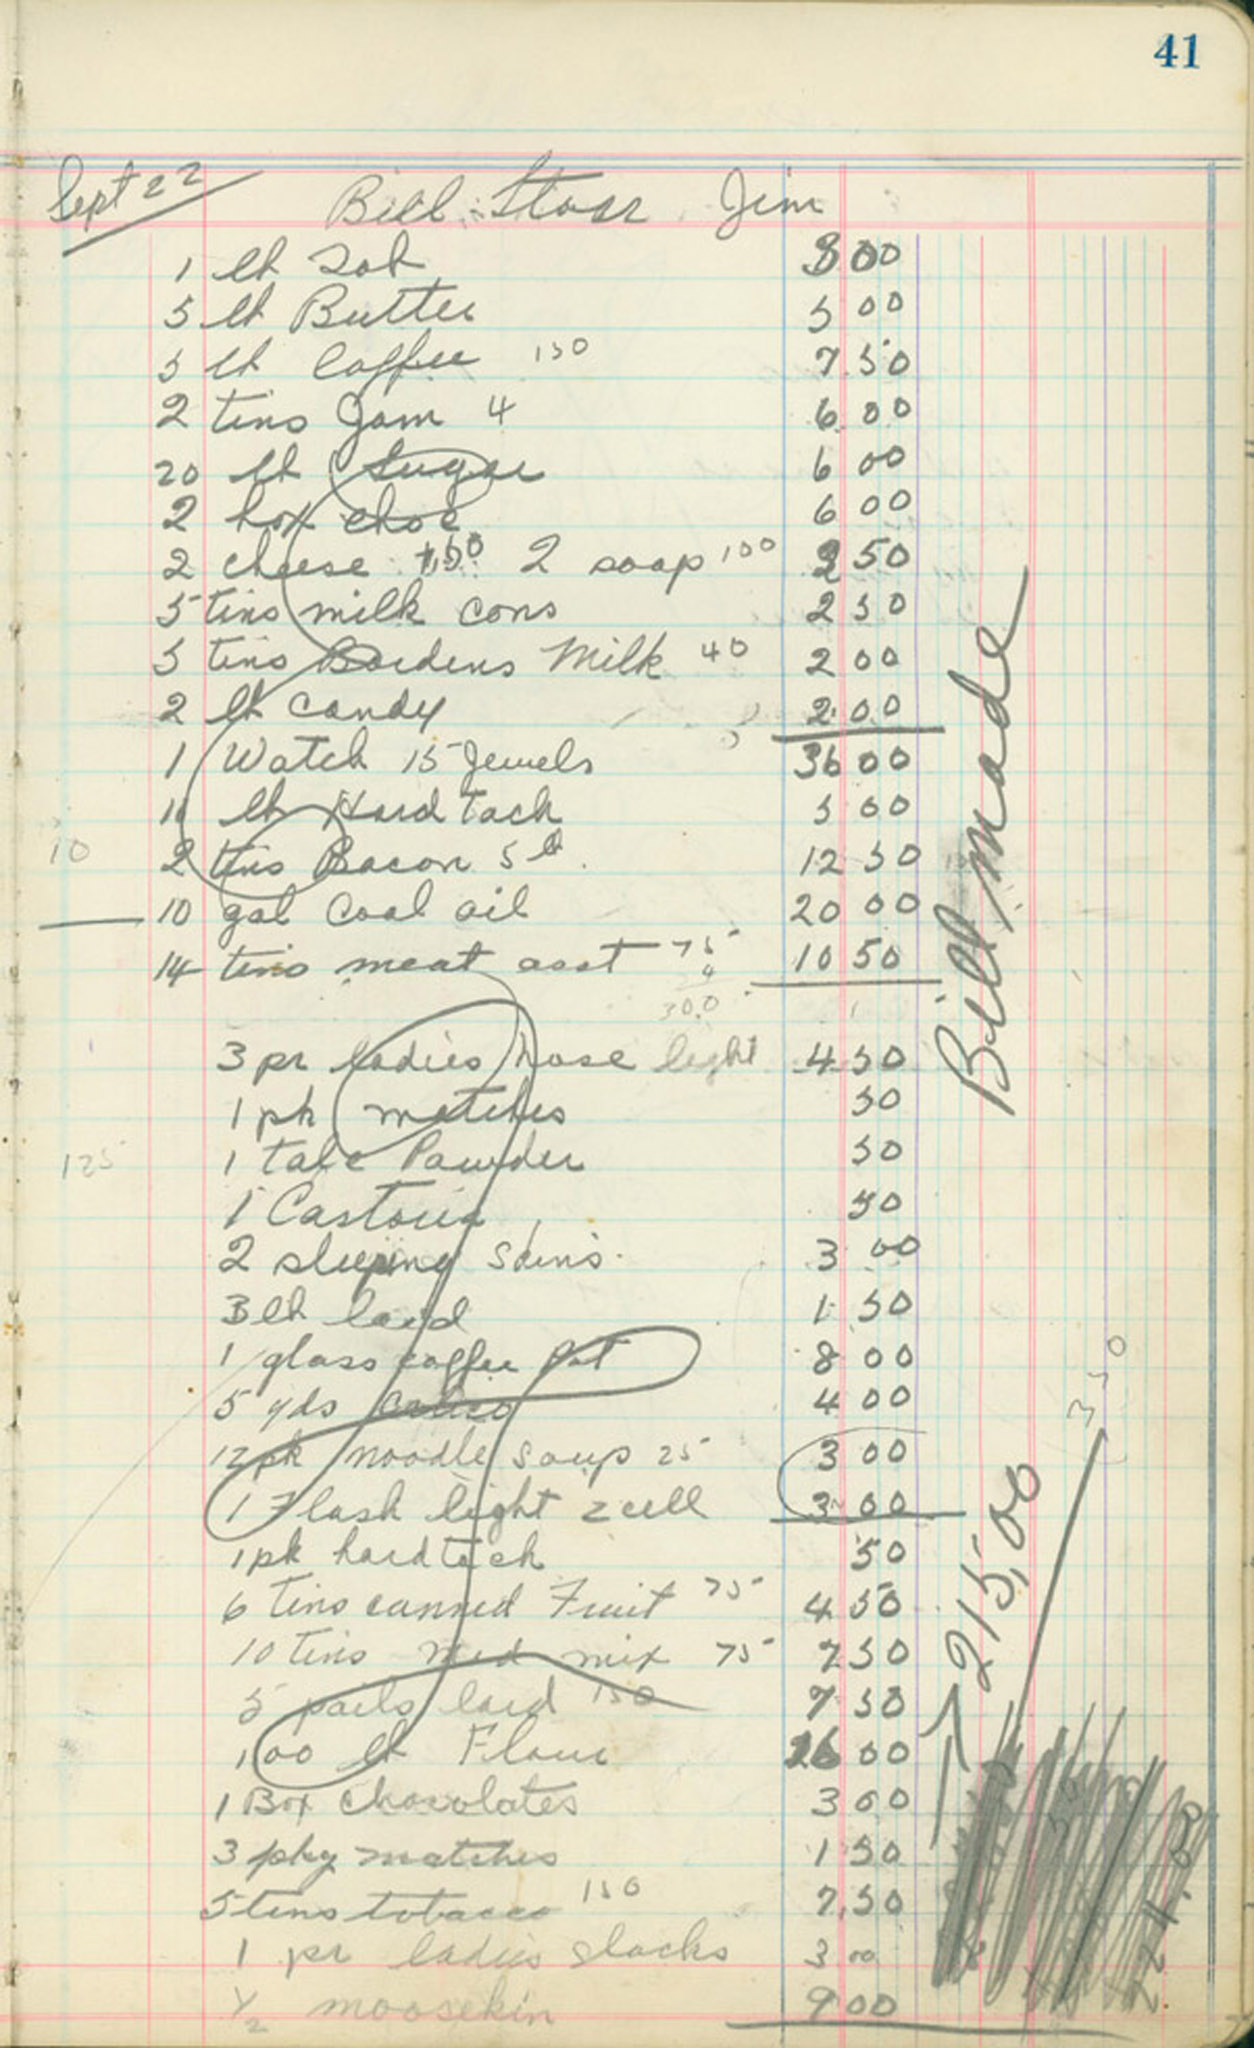 41
Sept 22 Bill Starr Jim
1 lb 8 00
5 lb Butter 5 00
5 lb Coffee 150 7.50
2 tins Jam 4 6.00
20 lb Sugar 6 00
2 box choc 6 00
2 cheese 1.50 2 soap 100 2 50
5 tins milk cons 2 50
5 tins Bordens Milk 40 2 00
2 lb candy 2.00
1 Watch 15 Jewels 36 00
11 lb Hard Tack 5 00
10 2 tins Bacon 5 lb 12 50
10 gal Coal oil 20 00
14 tins meat asst 75 10 50
4
300
3 pr ladies hose light 4 50
1 pk matches 50
125 1 talc Powder 50
1 Castoria 50
2 sleeping 3 00
3 lb lard 1 50
1 glass coffee pot 8 00
5 yds calico 4 00
12 pk noodle soup 25 3 00
1 Flash light 2 cell 3 00
1 pk hardtack 50
6 Tins canned Fruit 75 4 50
10 tins mix 75 7 50
5 pails lard 150 7 50
100 lb Flour 26 00
1 Box chocolates 3 00
3 pkg matches 1 50
5 tins tobacco 150 7.50
1 pr ladies slacks 3 00
1/2 mooseskin 9 00
Bill made
215,00